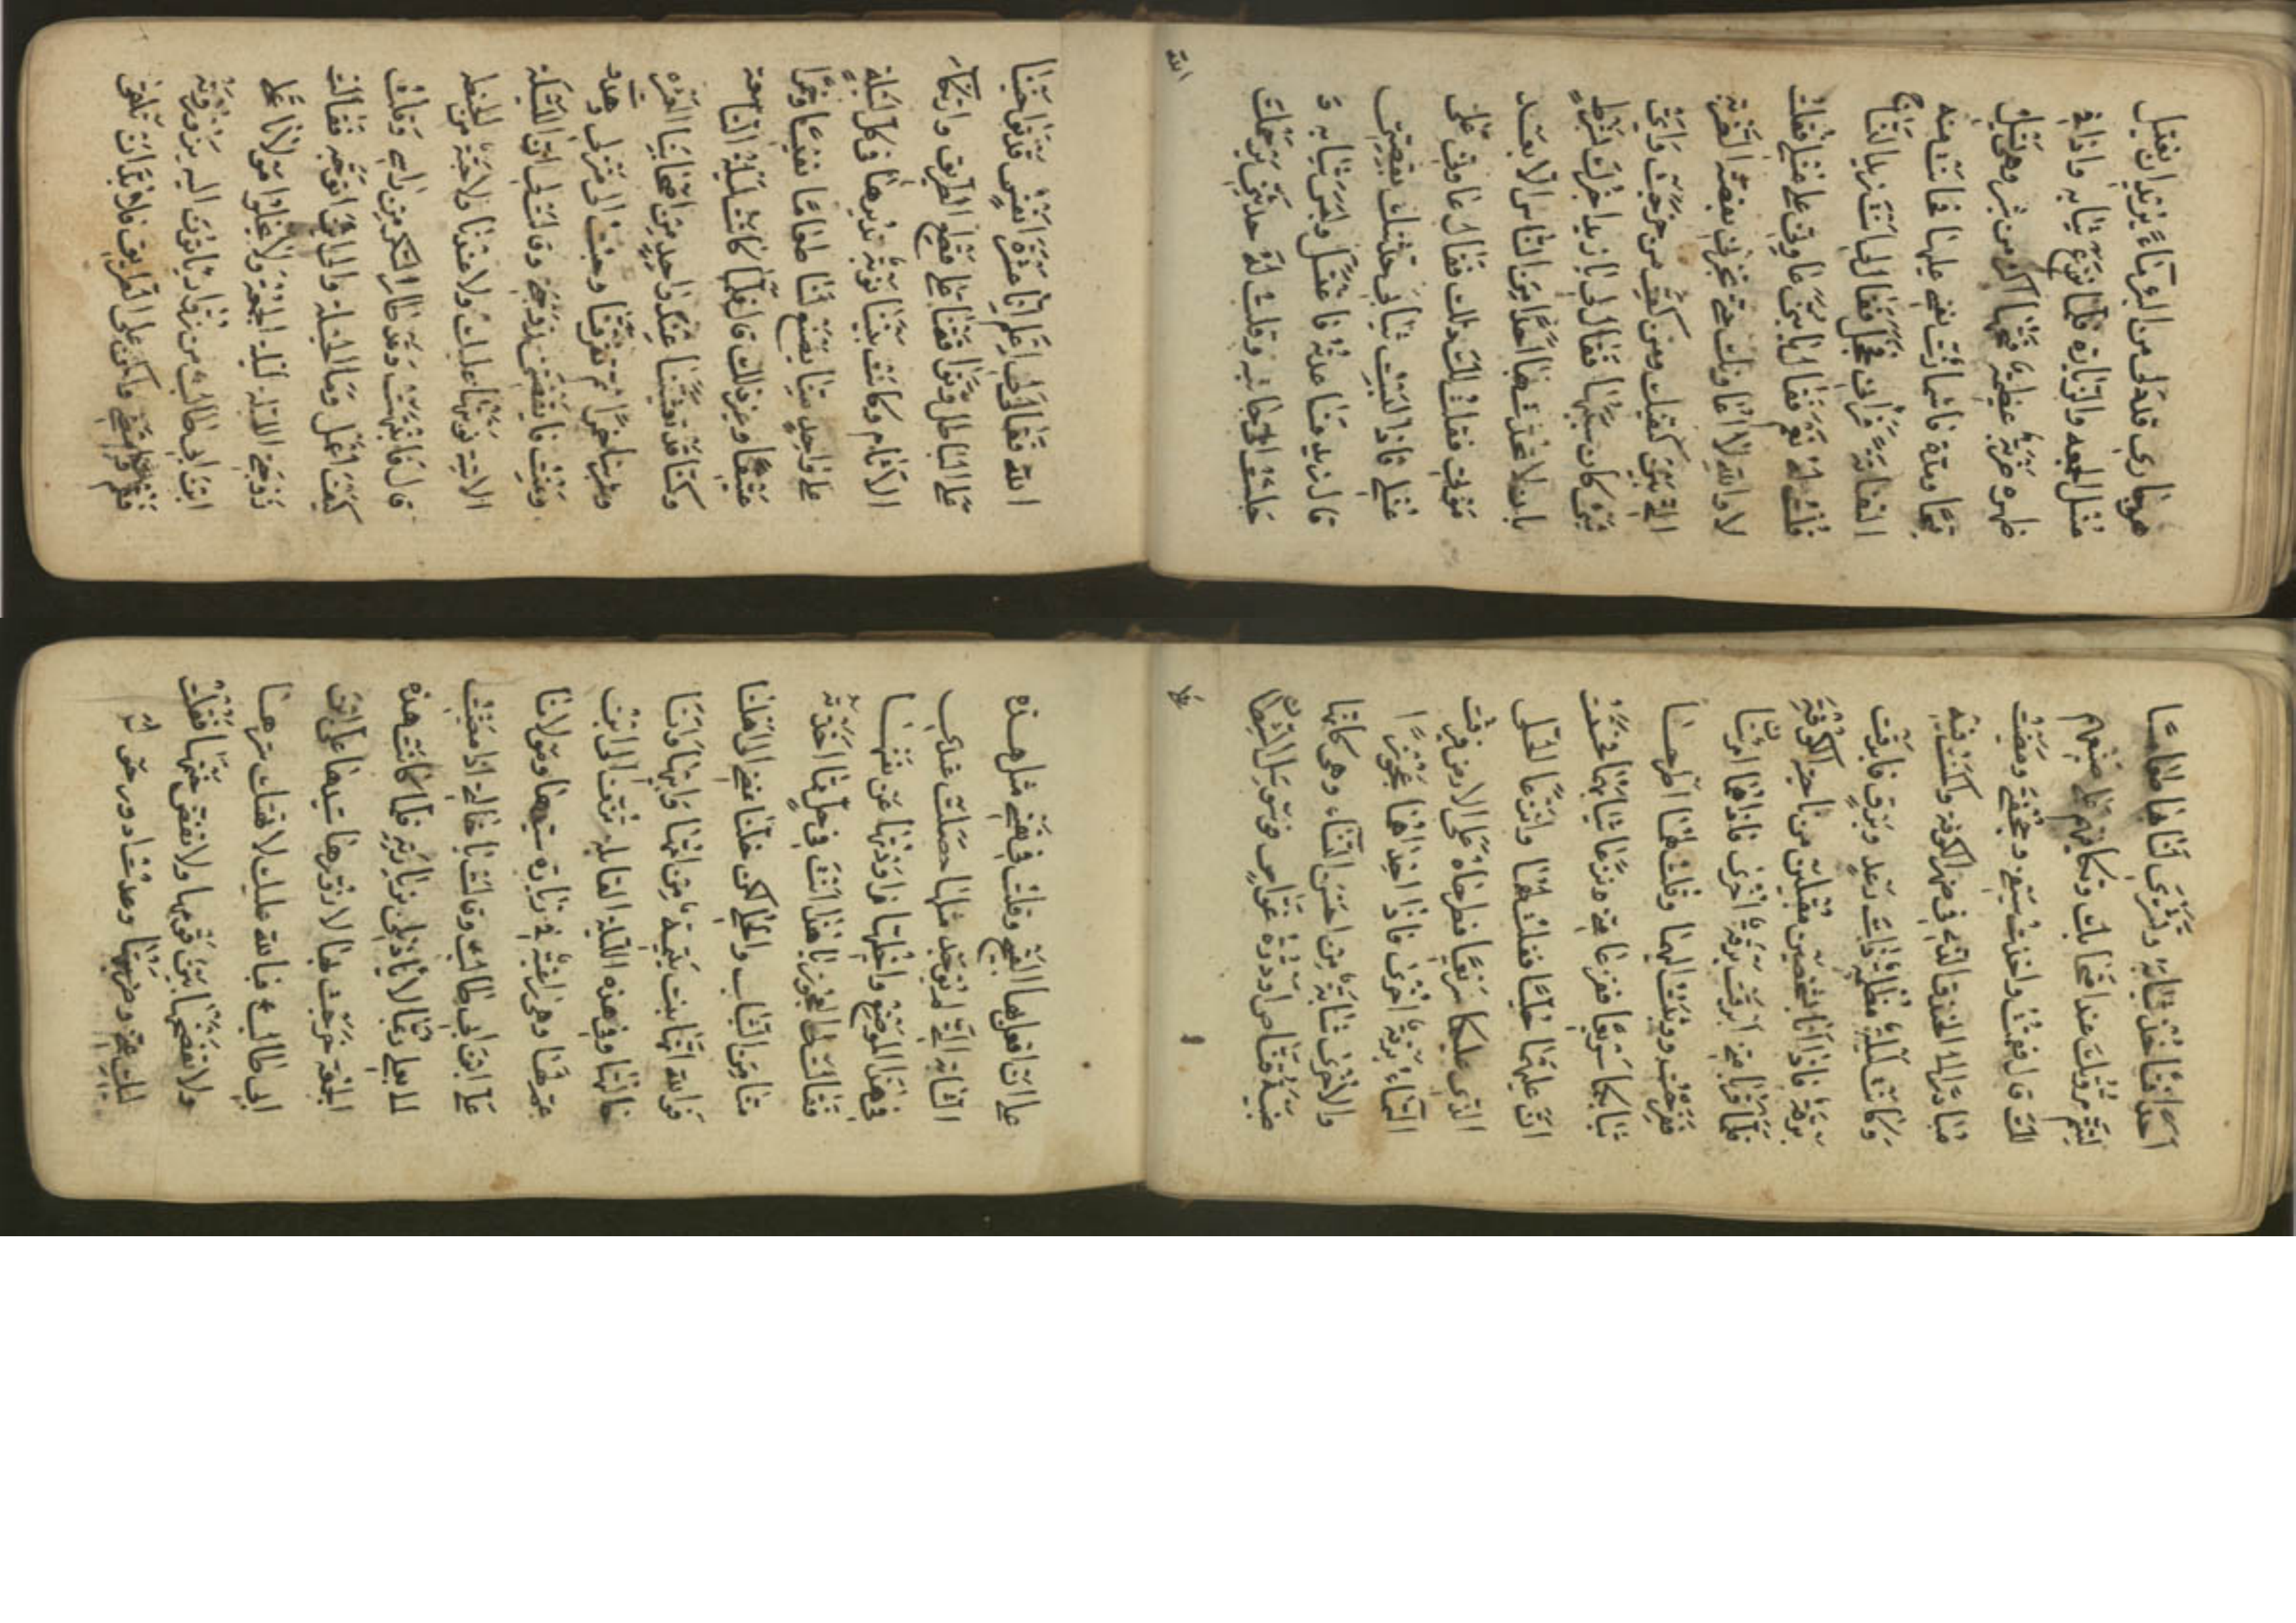 هو يناديني قد دنى من البئر ماءً يريد ان يغتسل
غسل الجمعه والزيارة فلما نزع ثيابه واذا في
ظهره ضربة عظيمة فتحها اكثر من شبر وهي تسيل
قيحا ومدة فاشمأزت نفسي عليها فحانت منه
التفاتة فرآني فخجل فقال لي انت زيد النساج
قلت له نعم فقال لي يا بني عاوني على غسلي فقلت
لا والله لا اعاونك حتى تخبرني بقصة الضربة
التي بين كتفيك ومن كف من خرجت واي
شيء كان سببها فقال لي يا زيد اخبرك بشرط
بان لا تحدث بها احدا من الناس الا بعد
موتي فقلت لك ذلك فقال عاوني على
غسلي فاذا لبست ثيابي حدثتك بقصتي
قال زيد فساعدته فاغتسل ولبس ثيابه و
جلست الى جانبه وقلت له حدثني يرحمك
الله
الله فقال لي اعلم انا عشرة انفس قد تواخينا
على الباطل وتوافقنا على قطع الطريق وارتكاب
الآثام وكانت بيننا نوبة نديرها في كل ليلة
على واحد منا يصنع لنا طعاما نفيسا وخمرا
عتيقا وغير ذلك قال فلما كانت ليلة التاسعة
وكنا قد تعشينا عند واحد من اصحابنا العشرة
وشربنا خمرا ثم تفرقنا وجئت الى منزلي وهدرت
ونمت فايقظتني زوجتي وقالت لي ان الليلة
الاتية نوبتها عليك ولا عندنا ولا حبة من الحنطة
قال فانتبهت وقد طار السكر من راسي وقلت
كيف اعمل وما الحيلة والى اين اتوجه فقالت
زوجتي الليلة ليلة الجمعة ولا يخلوا مولانا علي
ابن ابي طالب من زوار ياتون اليه يزورونه
فقم وامض واكمن على الطريق فلا بد ان تلقى
احدا فتاخذ ثيابه وتشتري لنا طعاما
لتتم مروتك عند اصحابك وتكافيهم على صنيعهم
لك قال فقمت واخذت سيفي وحجفتي ومضيت
مبادرا الى الخندق الذي في ظهر الكوفة وكمنت فيه
وكانت ليلة مظلمة ذات رعد وبرق فابرقت
برقة فاذا انا بشخصين مقبلين من ناحية الكوفة
فلما قربا مني ابرقت برقة اخرى فاذا هما امرأتان
ففرحت ودنوت اليهما وقلت لهما اطرحا
ثيابكما سريعا ففزعا مني ونزعا ثيابهما فحسست
ان عليهما حليا فقلت لهما وانزعا الحلي
الذي عليكما سريعا فطرحاه على الارض فبرقت
السماء برقة اخرى فاذا احدهما عجوزا
والاخرى شابة من احسن النساء وهي كانها
ضبية قناص او درة غواص فوسوس لي الشيطان
على
على ان افعل بها القبيح وقلت في نفسي مثل هذه
الشابة التي لم توجد مثلها حصلت عندي
في هذا الموضع واخليها فراودتها عن نفسها
فقالت لي العجوز يا هذا انت في حل مما اخذته
منا من الثياب والحلي لكن خلنا نمضي الى اهلنا
فوالله انها بنت يتيمة من امها وابيها وانا
خالتها وفي هذه الليلة القابلة تزف الى ابن
عم لها وهي راغبة في زيارة سيدها ومولانا
علي ابن ابي طالب وقالت يا خالتي اذا مضيت
الى بعلي ربما لا ياذن لي بزيارته فلما كانت هذه
الجمعة خرجت بها لازورها سيدها علي ابن
ابي طالب فبالله عليك لا تهتك سترها
ولا تفضحها بين قومها ولا تفض ختمها فقلت
اليك عني وضربتها وعدت ادور حول